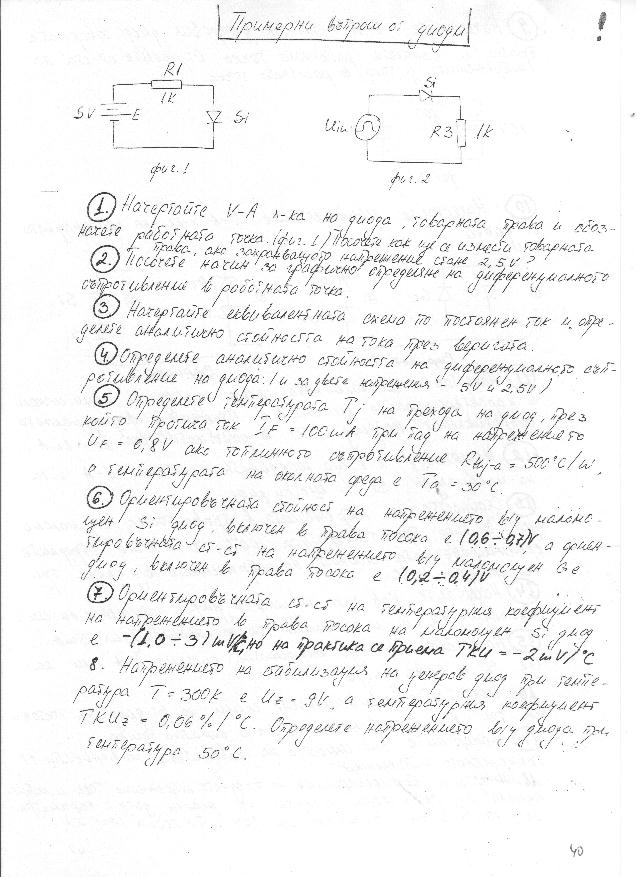 Примерни въпроси от диоди
!
R1
1K
5V
E
Si
фиг. 1
Si
Uin
R3
1K
фиг. 2
1. Начертайте V-A х-ка на диода, товарната права и обоз-
начете работната точка. (фиг. 1) Посочете как ще се измести товарната
права, ако захранващото напрежение стане 2,5V?
2. Посочете начин за графично определяне на диференциалното
съпротивление в работната точка.
3 Начертайте еквивалентната схема по постоянен ток и опре-
делете аналитично стойността на тока през веригата.
4. Определете аналитично стойността на диференциалното съп-
ротивление на диода. (и за двете напрежения - 5V и 2,5V)
5 Определете температурата Tj на прехода на диод, през
който протича ток IF = 100mA при пад на напрежението
UF = 0,8V ако топлинното съпротивление Rthj-a = 500°C/W,
а температурата на околната среда е Ta = 30°C.
6. Ориентировъчната стойност на напрежението в/у маломо-
щен Si диод, включен в права посока е (0,6÷0,7)V, а ориен-
тировъчната ст-ст на напрежението в/у маломощен Ge
диод, включен в права посока е (0,2÷0,4)V
7. Ориентировъчната ст-ст на температурния коефициент
на напрежението в права посока на маломощен Si диод
е -(1,0÷3)mV/°C, но на практика се приема TKU = -2mV/°C
8. Напрежението на стабилизация на ценеров диод при темпе-
ратура T = 300K е Uz = 9V, а температурния коефициент
TKUz = 0,06%/°C. Определете напрежението в/у диода при
температура 50°C.
40